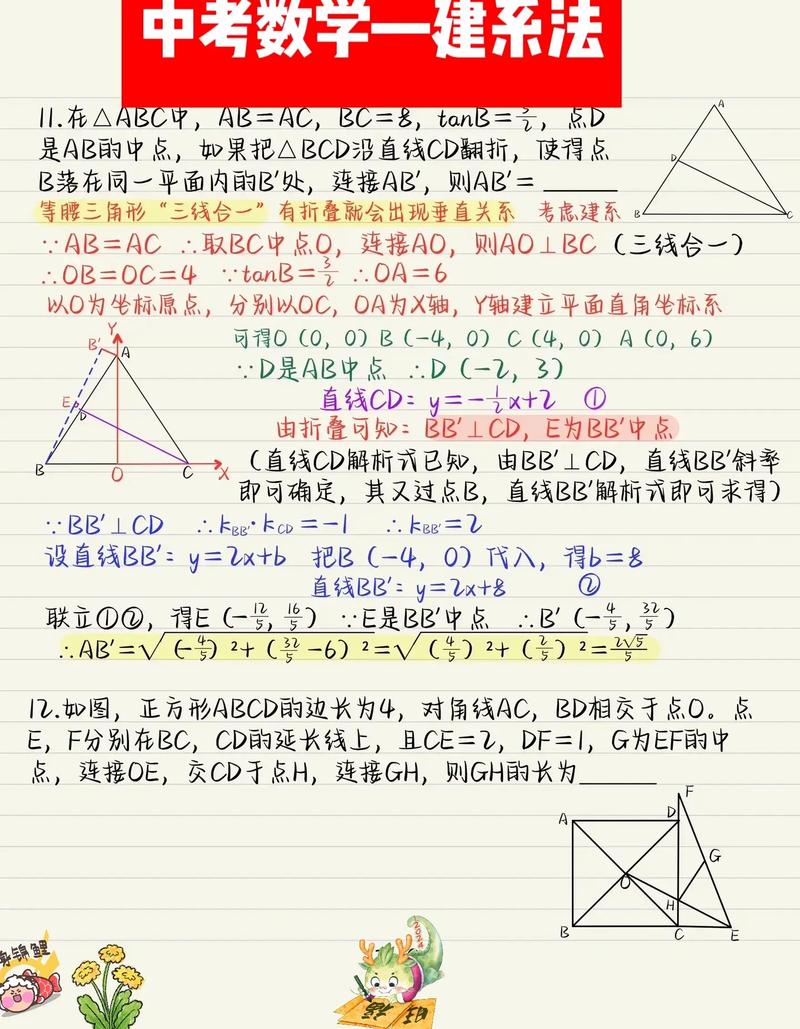 中考数学—建系法
11.在△ABC中，AB=AC，BC=8，tanB=3/2，点D
是AB的中点，如果把△BCD沿直线CD翻折，使得点
B落在同一平面内的B′处，连接AB′，则AB′= ______
等腰三角形“三线合一” 有折叠就会出现垂直关系 考虑建系
∵AB=AC ∴取BC中点O，连接AO，则AO⊥BC（三线合一）
∴OB=OC=4 ∵tanB=3/2 ∴OA=6
以O为坐标原点，分别以OC，OA为X轴，Y轴建立平面直角坐标系
可得O（0，0）B（-4，0）C（4，0）A（0，6）
∵D是AB中点 ∴D（-2，3）
直线CD：y=-1/2x+2 ①
由折叠可知：BB′⊥CD，E为BB′中点
（直线CD解析式已知，由BB′⊥CD，直线BB′斜率
即可确定，其又过点B，直线BB′解析式即可求得）
∵BB′⊥CD ∴k_BB′·k_CD=-1 ∴k_BB′=2
设直线BB′：y=2x+b 把B（-4，0）代入，得b=8
直线BB′：y=2x+8 ②
联立①②，得E（-12/5，16/5）∵E是BB′中点 ∴B′（-4/5，32/5）
∴AB′=√（-4/5）²+（32/5-6）²=√（4/5）²+（2/5）²=2√5/5
12.如图，正方形ABCD的边长为4，对角线AC，BD相交于点O。点
E，F分别在BC，CD的延长线上，且CE=2，DF=1，G为EF的中
点，连接OE，交CD于点H，连接GH，则GH的长为______
A
D
B
C
Y
B′
A
E
D
B
O
C
X
F
A
D
G
O
H
B
C
E
锦鲤
2024